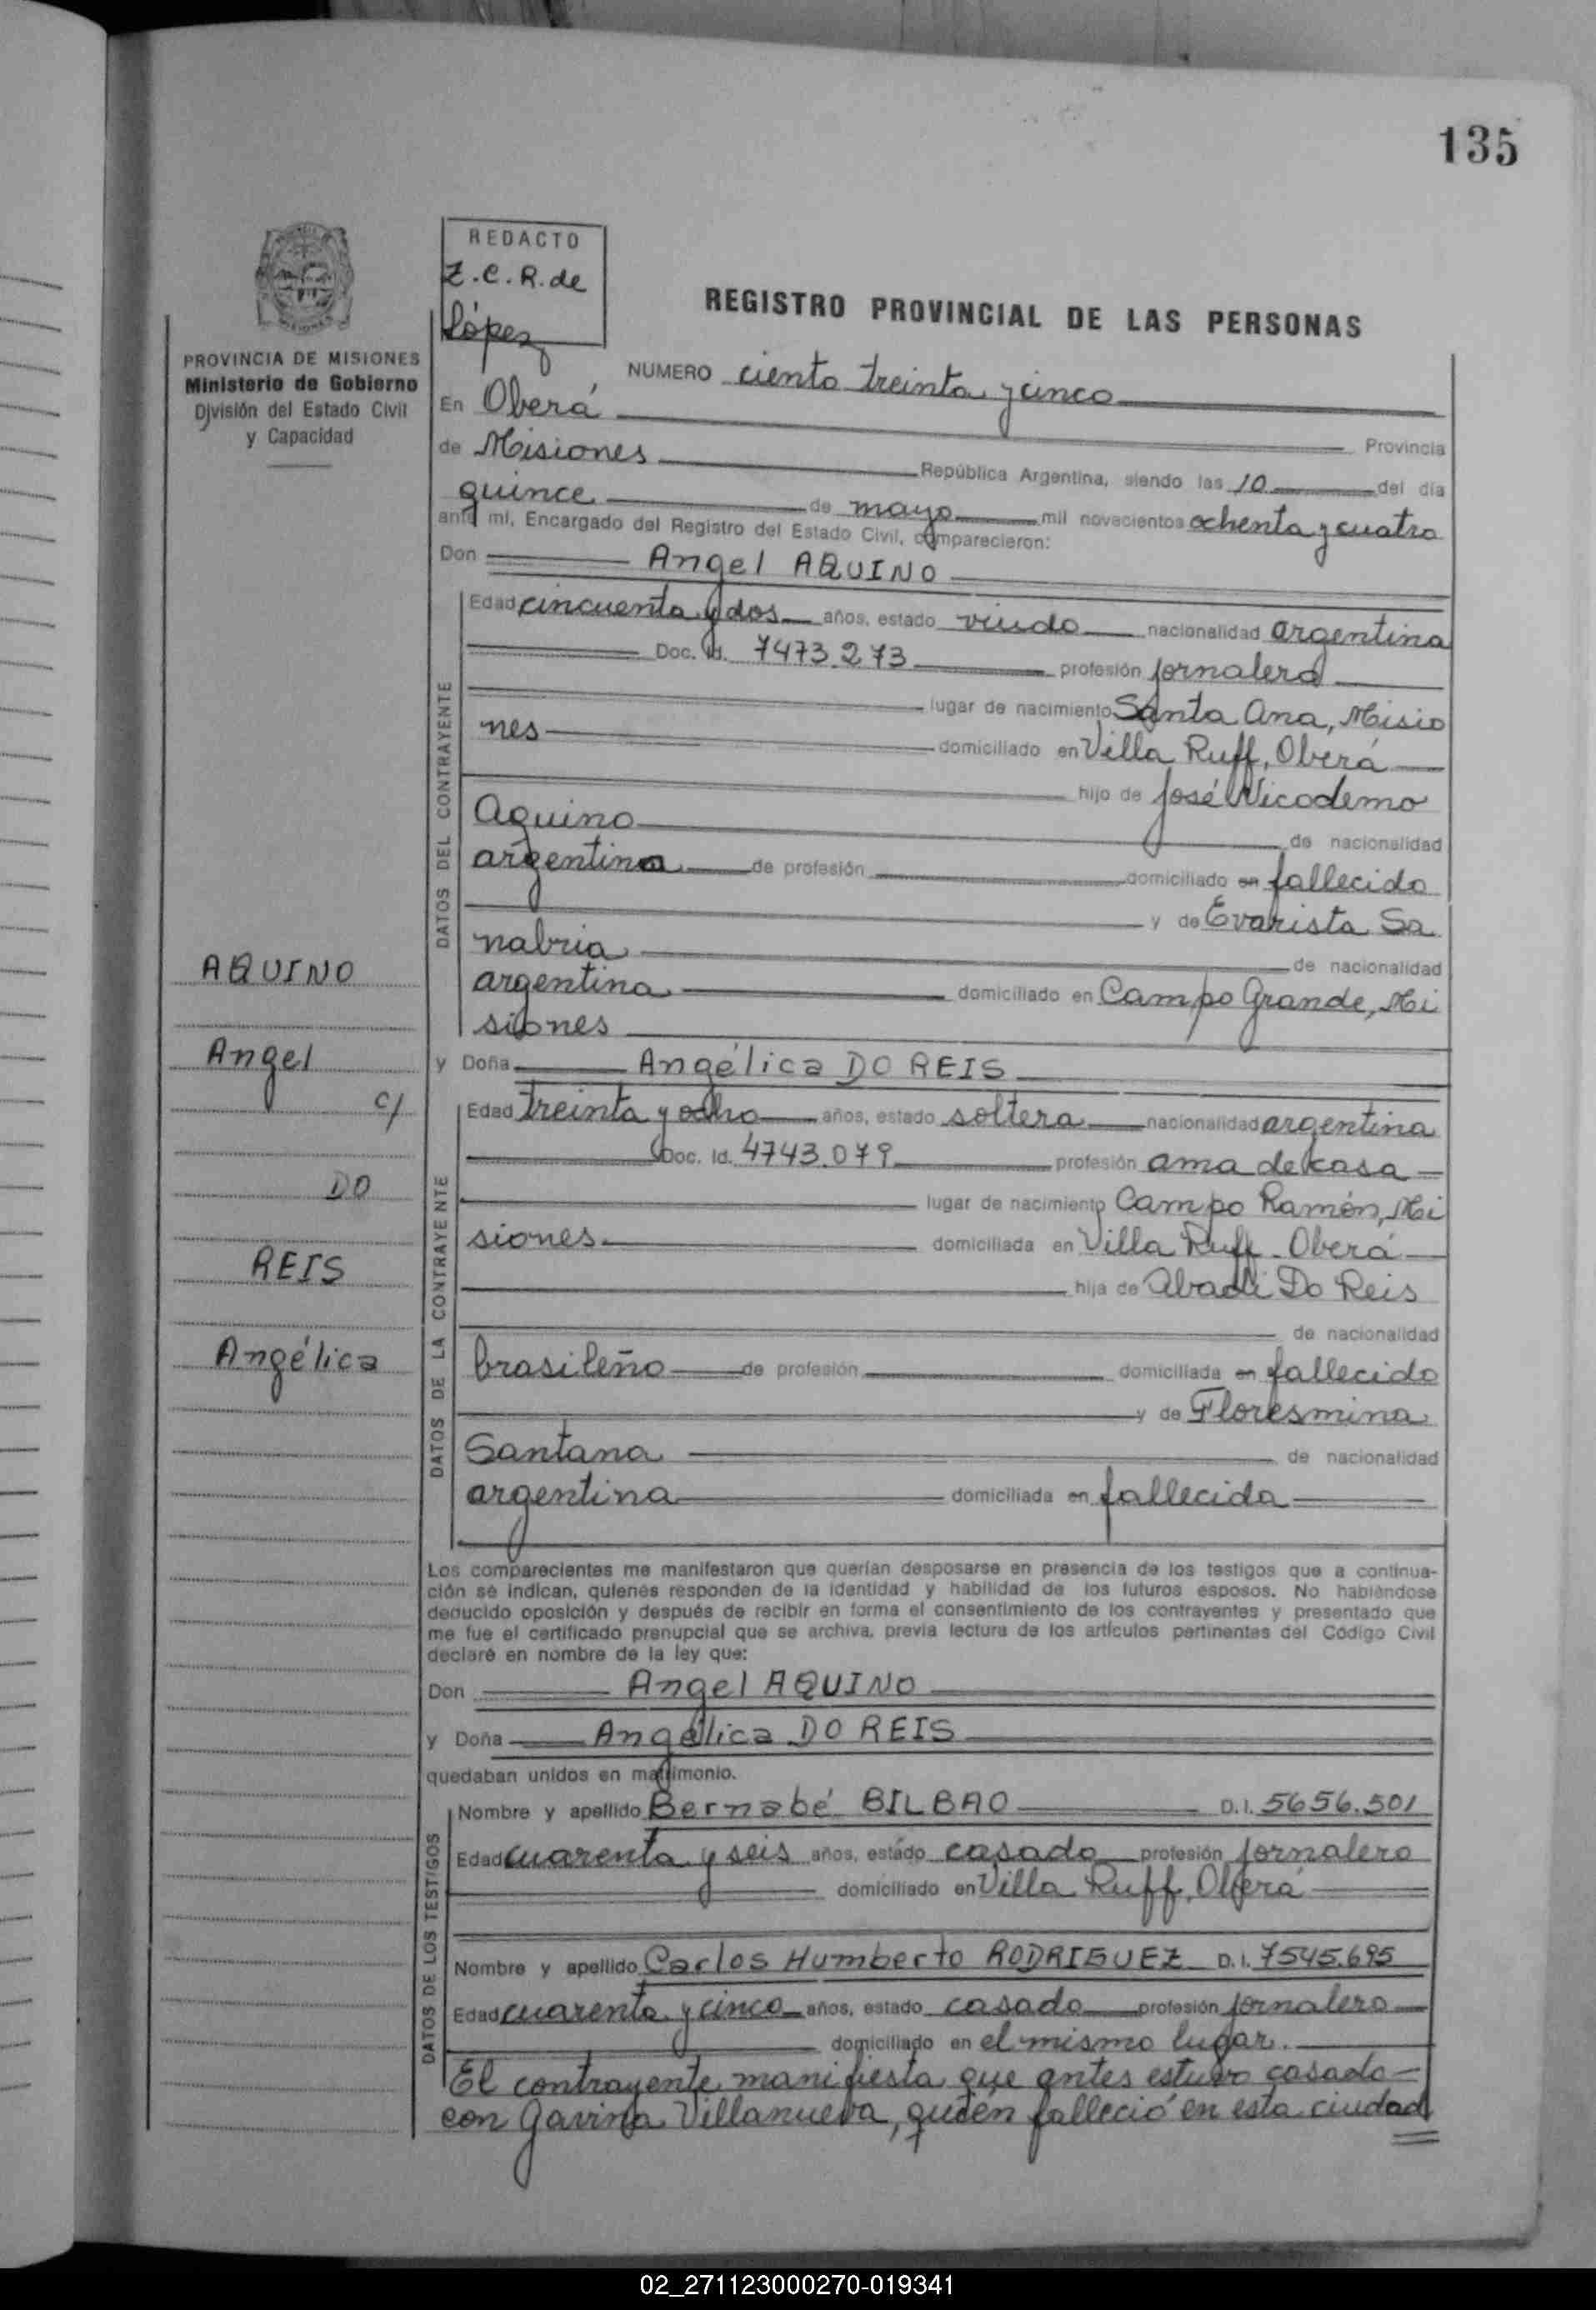 135
REDACTO
Z.C.R. de
López
REGISTRO PROVINCIAL DE LAS PERSONAS
PROVINCIA DE MISIONES
Ministerio de Gobierno
División del Estado Civil
y Capacidad
NUMERO ciento treinta y cinco
En Oberá Provincia
de Misiones República Argentina, siendo las 10 del día
quince de mayo mil novecientos ochenta y cuatro
ante mí, Encargado del Registro del Estado Civil, comparecieron:
Don Angel AQUINO
DATOS DEL CONTRAYENTE
Edad cincuenta y dos años, estado viudo nacionalidad argentina
Doc. Id. 7473.273 profesión jornalero
lugar de nacimiento Santa Ana, Misio
nes domiciliado en Villa Ruff, Oberá
hijo de José Nicodemo
Aquino de nacionalidad
argentina de profesión domiciliado en fallecido
y de Evarista Sa
nabria de nacionalidad
argentina domiciliado en Campo Grande, Mi
siones
AQUINO
Angel
c/
DO
REIS
Angélica
y Doña Angélica DO REIS
DATOS DE LA CONTRAYENTE
Edad treinta y ocho años, estado soltera nacionalidad argentina
Doc. Id. 4743.079 profesión ama de casa
lugar de nacimiento Campo Ramón, Mi
siones domiciliada en Villa Ruff - Oberá
hija de Abadi Do Reis
de nacionalidad
brasileño de profesión domiciliada en fallecido
y de Floresmina
Santana de nacionalidad
argentina domiciliada en fallecida
Los comparecientes me manifestaron que querían desposarse en presencia de los testigos que a continua-
ción se indican, quienes responden de la identidad y habilidad de los futuros esposos. No habiéndose
deducido oposición y después de recibir en forma el consentimiento de los contrayentes y presentado que
me fue el certificado prenupcial que se archiva, previa lectura de los artículos pertinentes del Código Civil
declaré en nombre de la ley que:
Don Angel AQUINO
y Doña Angélica DO REIS
quedaban unidos en matrimonio.
DATOS DE LOS TESTIGOS
Nombre y apellido Bernabé BILBAO D.I. 5656.501
Edad cuarenta y seis años, estado casado profesión jornalero
domiciliado en Villa Ruff, Oberá
Nombre y apellido Carlos Humberto RODRIGUEZ D.I. 7545.695
Edad cuarenta y cinco años, estado casado profesión jornalero
domiciliado en el mismo lugar.
El contrayente manifiesta que antes estuvo casado
con Gavina Villanueva, quién falleció en esta ciudad
02_271123000270-019341